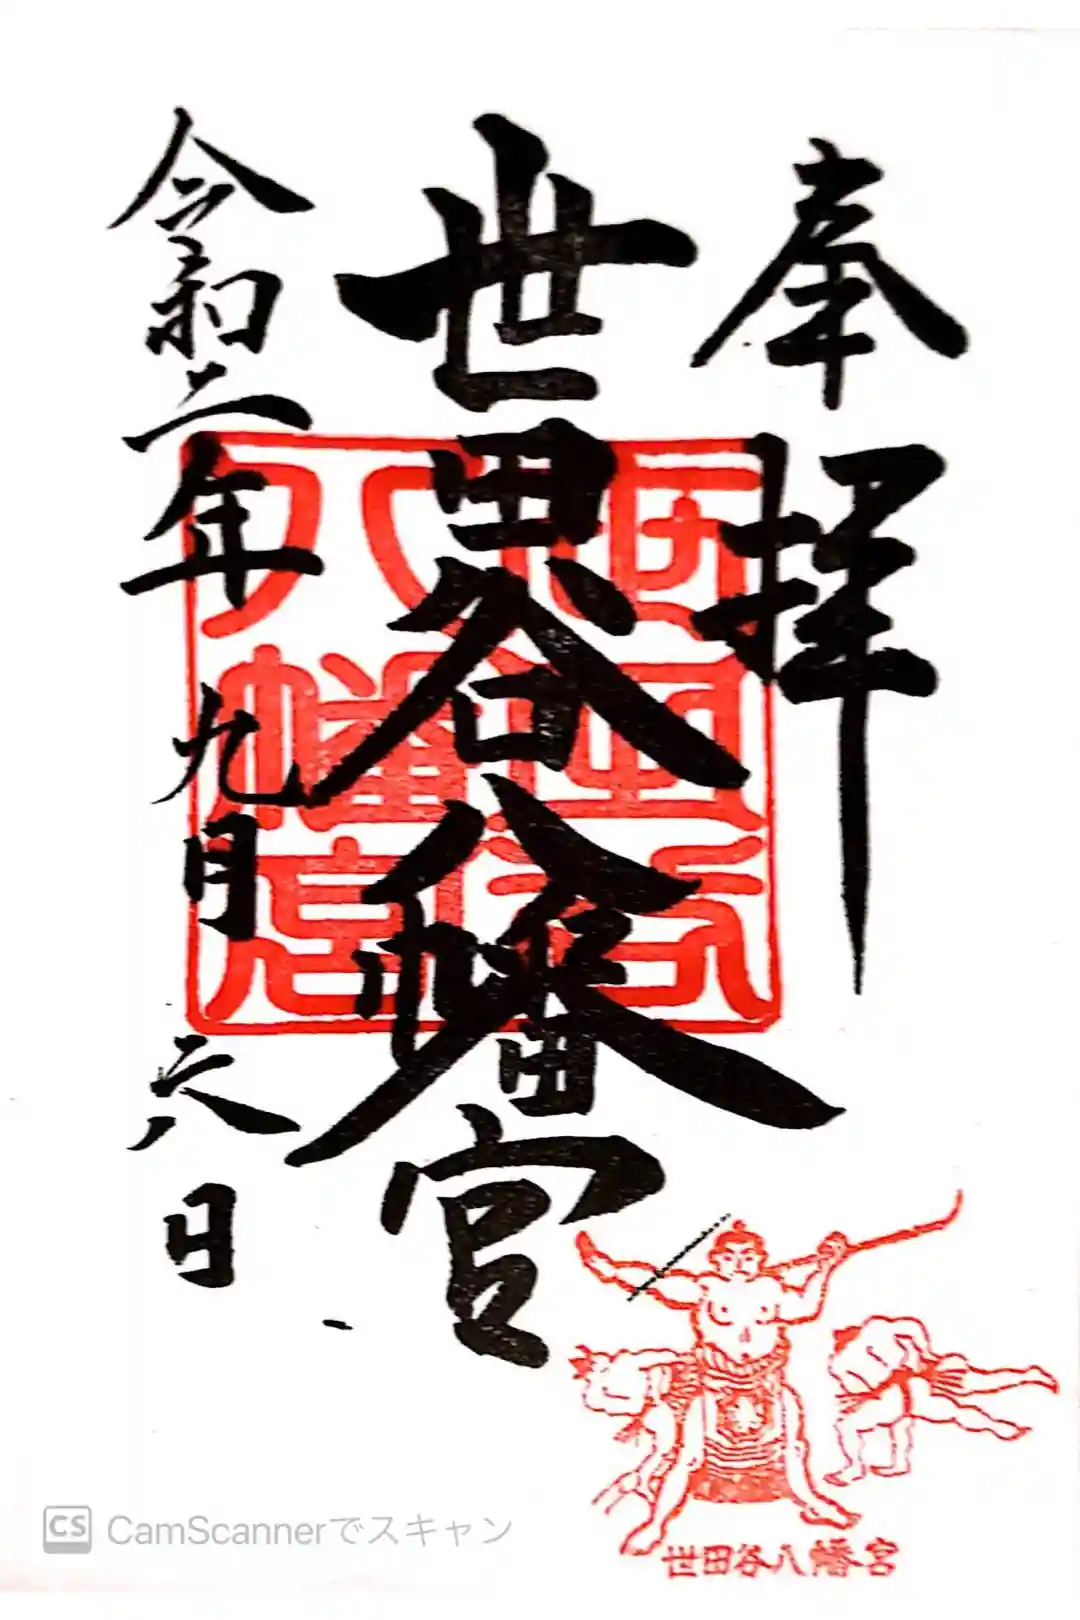 奉拝
世田谷八幡宮
令和二年九月六日
世田谷
八幡宮
世田谷八幡宮
CS CamScannerでスキャン